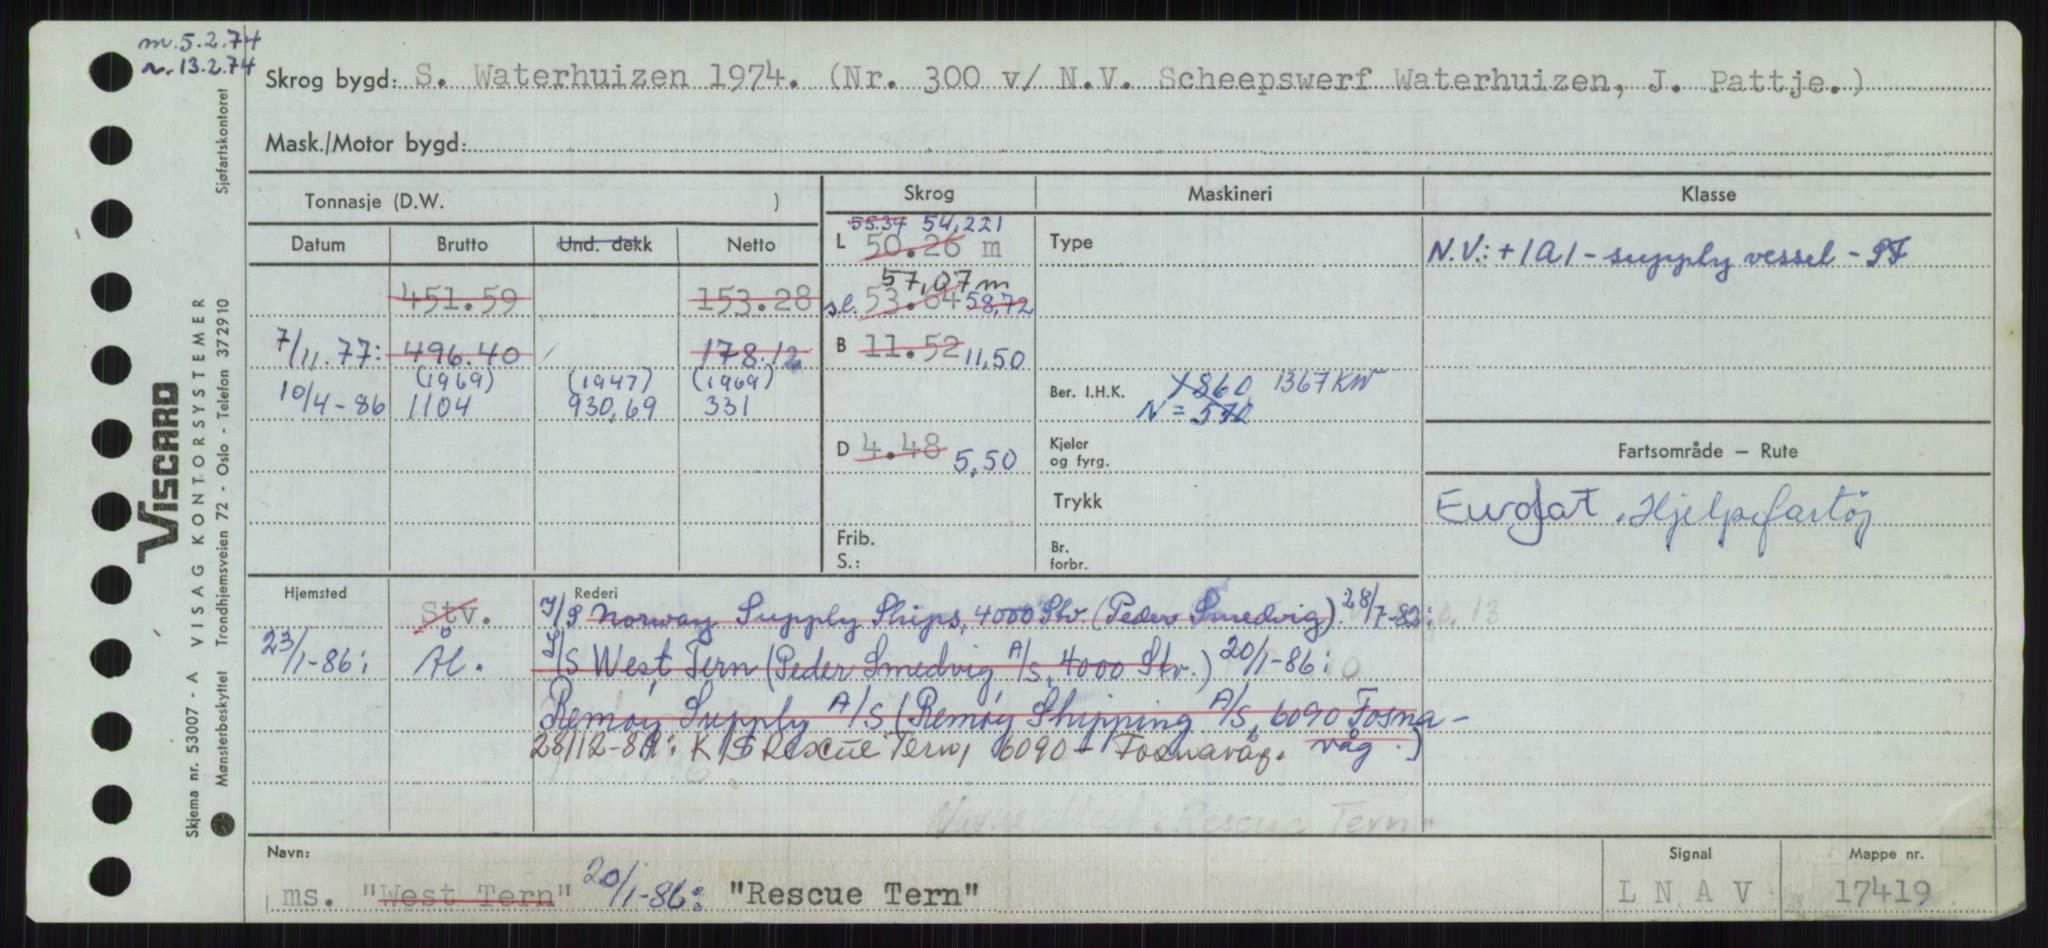 m. 5.2.74
n. 13.2.74
Skrog bygd: S. Waterhuizen 1974. (Nr. 300 v/ N.V. Scheepswerf Waterhuizen, J. Pattje.)
Mask./Motor bygd:
Tonnasje (D.W. )
Skrog
Maskineri
Klasse
Datum
Brutto
Und. dekk
Netto
L 55.37 54,221
50.26 m
57,07 m
s.l. 53.64 58,72
B 11.52 11,50
D 4.48 5,50
Frib.
S.:
451.59 153.28
7/11.77: 496.40 178.12
(1969) (1947) (1969)
10/4-86 1104 930,69 331
Type
Ber. I.H.K. 1860 1367 KW
N = 570
Kjeler
og fyrg.
Trykk
Br.
forbr.
N.V.: +1A1 - supply vessel - SF
Fartsområde — Rute
Eurofat. Hjelpefartöj
Hjemsted
Stv.
23/1-86: Ål.
Rederi
I/S Norway Supply Ships, 4000 Stv. (Peder Smedvig). 28/7-82:
I/S West Tern (Peder Smedvig A/S, 4000 Stv.) 20/1-86:
Remøy Supply A/S (Remøy Shipping A/S, 6090 Fosna-
våg.)
K/S Rescue Tern, 6090 - Fosnavåg.
Rescue Tern
Navn:
ms. "West Tern" 20/1-86: "Rescue Tern"
Signal
L N A V
Mappe nr.
17419
VISCARD
Skjema nr. 53007 - A VISAG KONTORSYSTEMER Sjøfartskontoret
Mønsterbeskyttet Trondhjemsveien 72 - Oslo - Telefon 372910